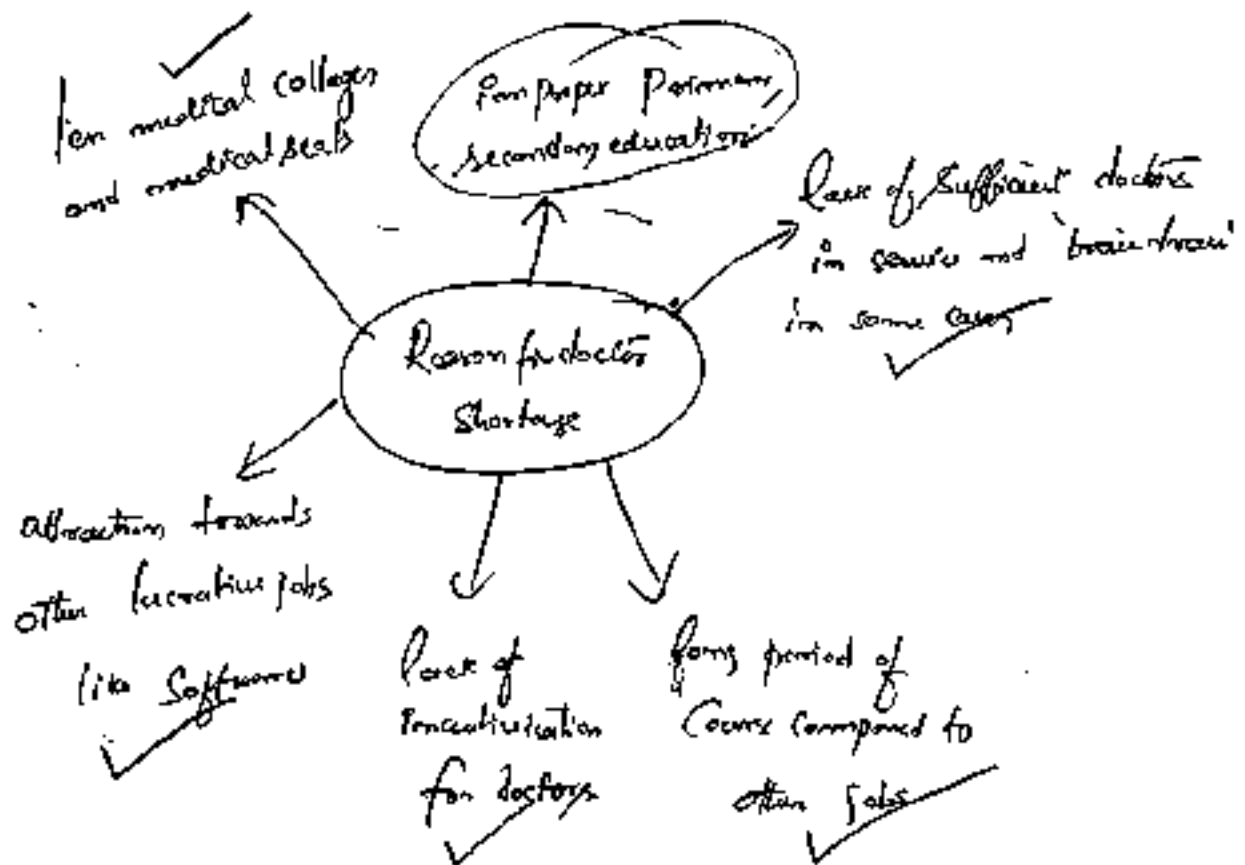 medical colleges
and medical seats
improper
secondary education
lack of sufficient doctors
in service and 'brain drain'
in some cases
Reason for doctor
Shortage
attraction towards
other lucrative jobs
like Software
lack of
incentivization
for doctors
long period of
Course compared to
other jobs